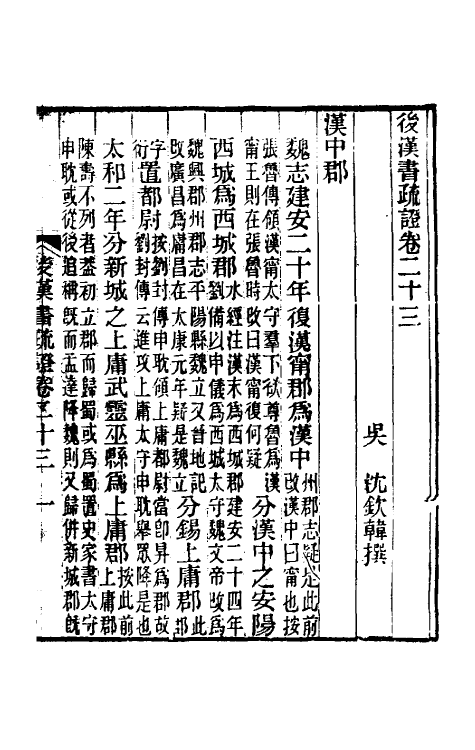 後漢書疏證卷二十三
吳 沈欽韓撰
漢中郡
魏志建安二十年復漢甯郡為漢中州郡志疑是此前改漢中曰甯也按
張魯傳領漢甯太守羣下欲尊魯為漢甯王則在張魯時改曰漢甯復何疑分漢中之安陽
西城為西城郡水經注漢末為西城郡建安二十四年劉備以申儀為西城太守魏文帝改為
魏興郡州郡志平陽縣魏立又晉地記改廣昌為庸昌在太康元年疑是魏立分錫上庸郡此郡
字衍置都尉按劉封傳申耽領上庸都尉當卽昇為郡故劉封傳云進攻上庸太守申耽舉眾降是也
太和二年分新城之上庸武靈巫縣為上庸郡按此前上庸郡
陳壽不列者蓋初立郡而歸蜀或為蜀置史家書太守申耽或從後追稱旣而孟達降魏則又歸併新城郡旣
後漢書疏證卷二十三 一